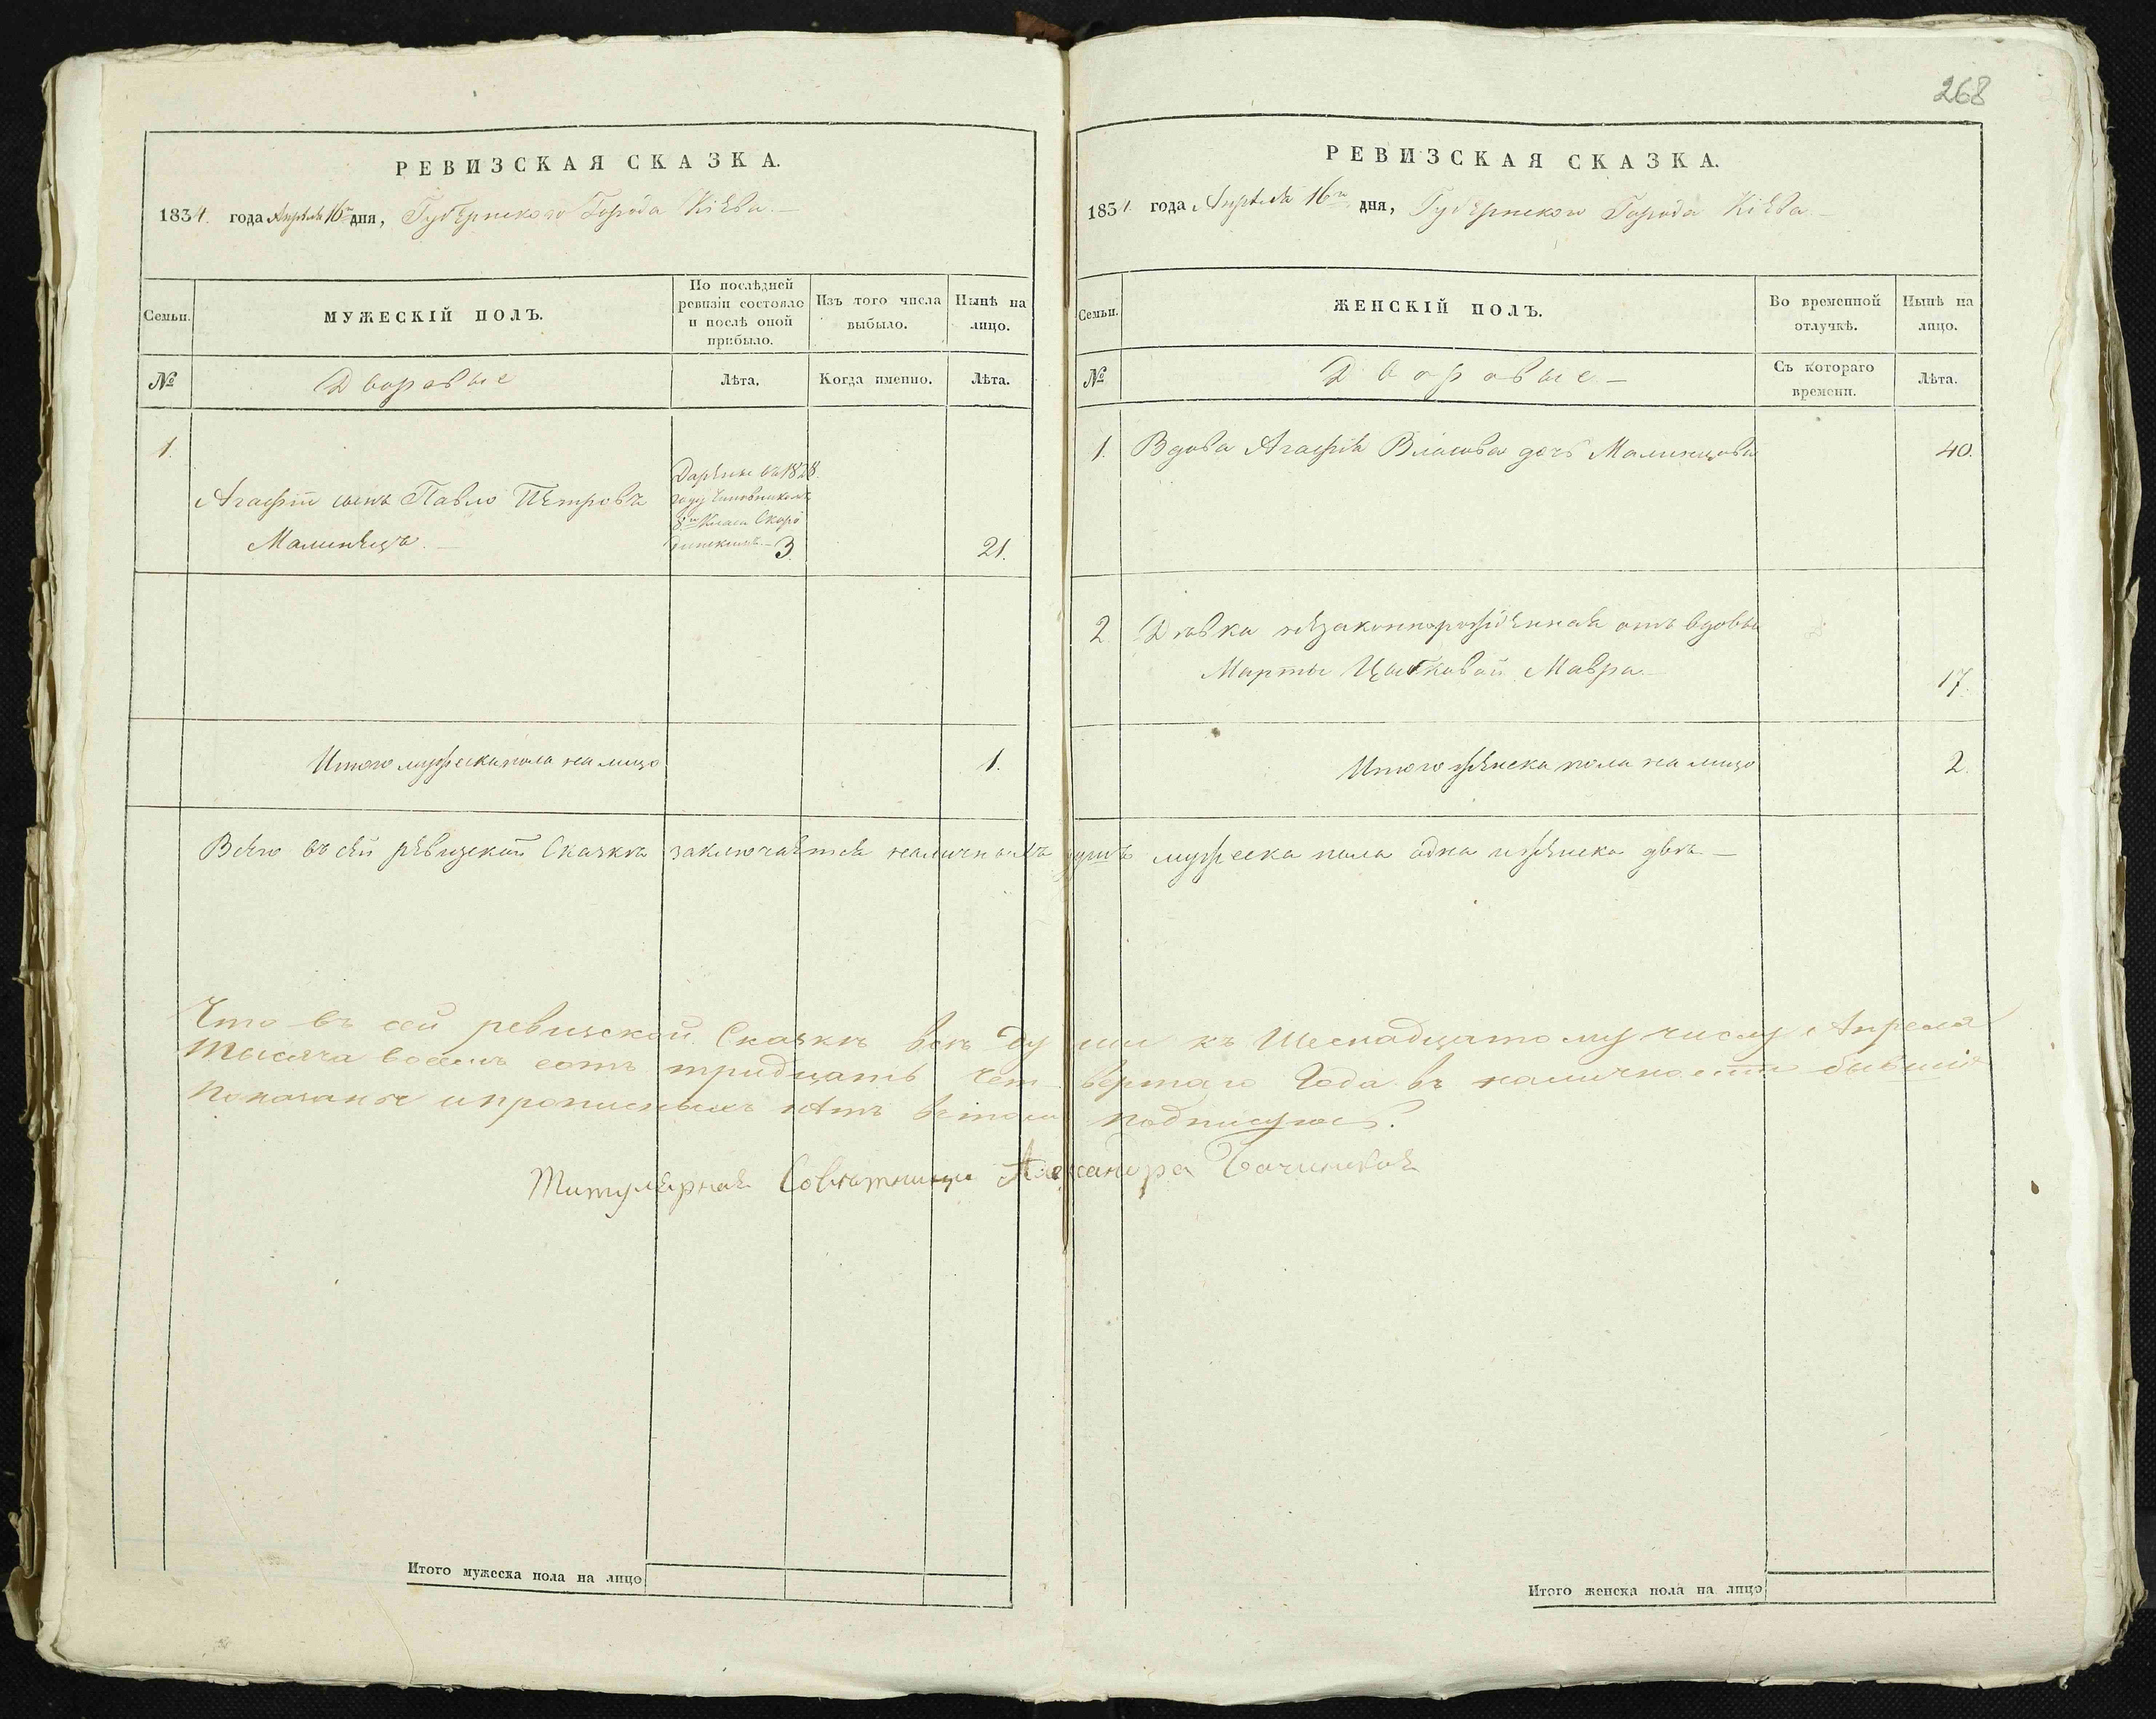 268
РЕВИЗСКАЯ СКАЗКА.
1834. года Апреля 16го дня, Губернского Города Кіева. —
Семьи.
МУЖЕСКІЙ ПОЛЪ.
По послѣдней ревизіи состояло и послѣ оной прибыло.
Изъ того числа выбыло.
Нынѣ на лицо.
№
Дворовые
Лѣта.
Когда именно.
Лѣта.
1.
Агафіи сынъ Павло Петровъ
Малинецъ. —
Дарены въ 1828.
году Чиновникомъ
8го Класа
3.
21.
Итого мужеска пола на лицо
1.
Всего въ сей ревизской Сказкѣ заключается наличныхъ душъ мужеска пола одна и женска двѣ —
РЕВИЗСКАЯ СКАЗКА.
1834. года Апреля 16го дня, Губернского Города Кіева —
Семьи.
ЖЕНСКІЙ ПОЛЪ.
Во временной отлучкѣ.
Нынѣ на лицо.
№
Дворовые —
Съ котораго времени.
Лѣта.
1. Вдова Агафія Власова дочь Малинцова
40.
2. Дѣвка незаконнорожденная отъ вдовы
Марты Мавра. —
17.
Итого женска пола на лицо
2.
Что въ сей ревизской Сказкѣ всѣ души къ Шеснадцатому числу Апреля
тысяча восемь сотъ тридцать четвертаго Года въ наличности бывшія
показаны и прописныхъ нѣтъ въ томъ подписуюсь.
Титулярная Совѣтница Александра
Итого мужеска пола на лицо
Итого женска пола на лицо